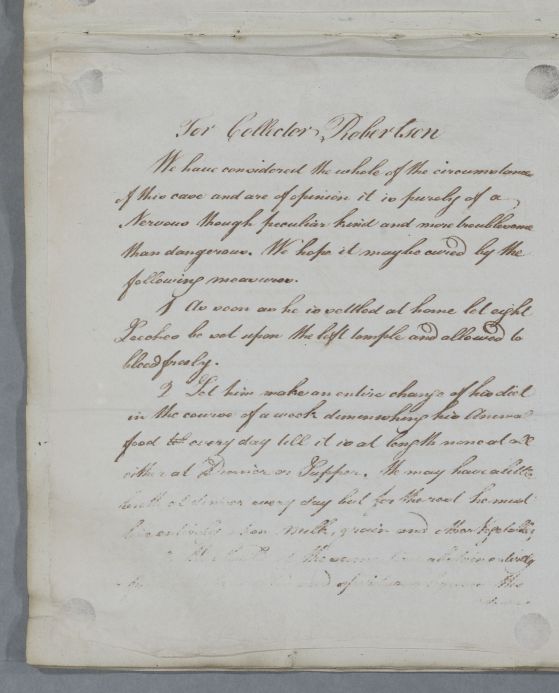 For Collector Robertson
We have considered the whole of the circumstance
of this case and are of opinion it is purely of a
Nervous though peculiar kind and more troublesome
than dangerous. We hope it may be cured by the
following measures.
1 As soon as he is settled at home let eight
Leeches be set upon the left temple and allowed to
bleed freely.
2 Let him make an entire change of his diet
in the course of a week diminishing his Animal
food every day till it is at length none at all
either at Dinner or Supper. He may have a little
broth at dinner every day but for the rest he must
live entirely on Milk, grain and other vegetables,
3 the same time abstain entirely
and spirituous liquors The